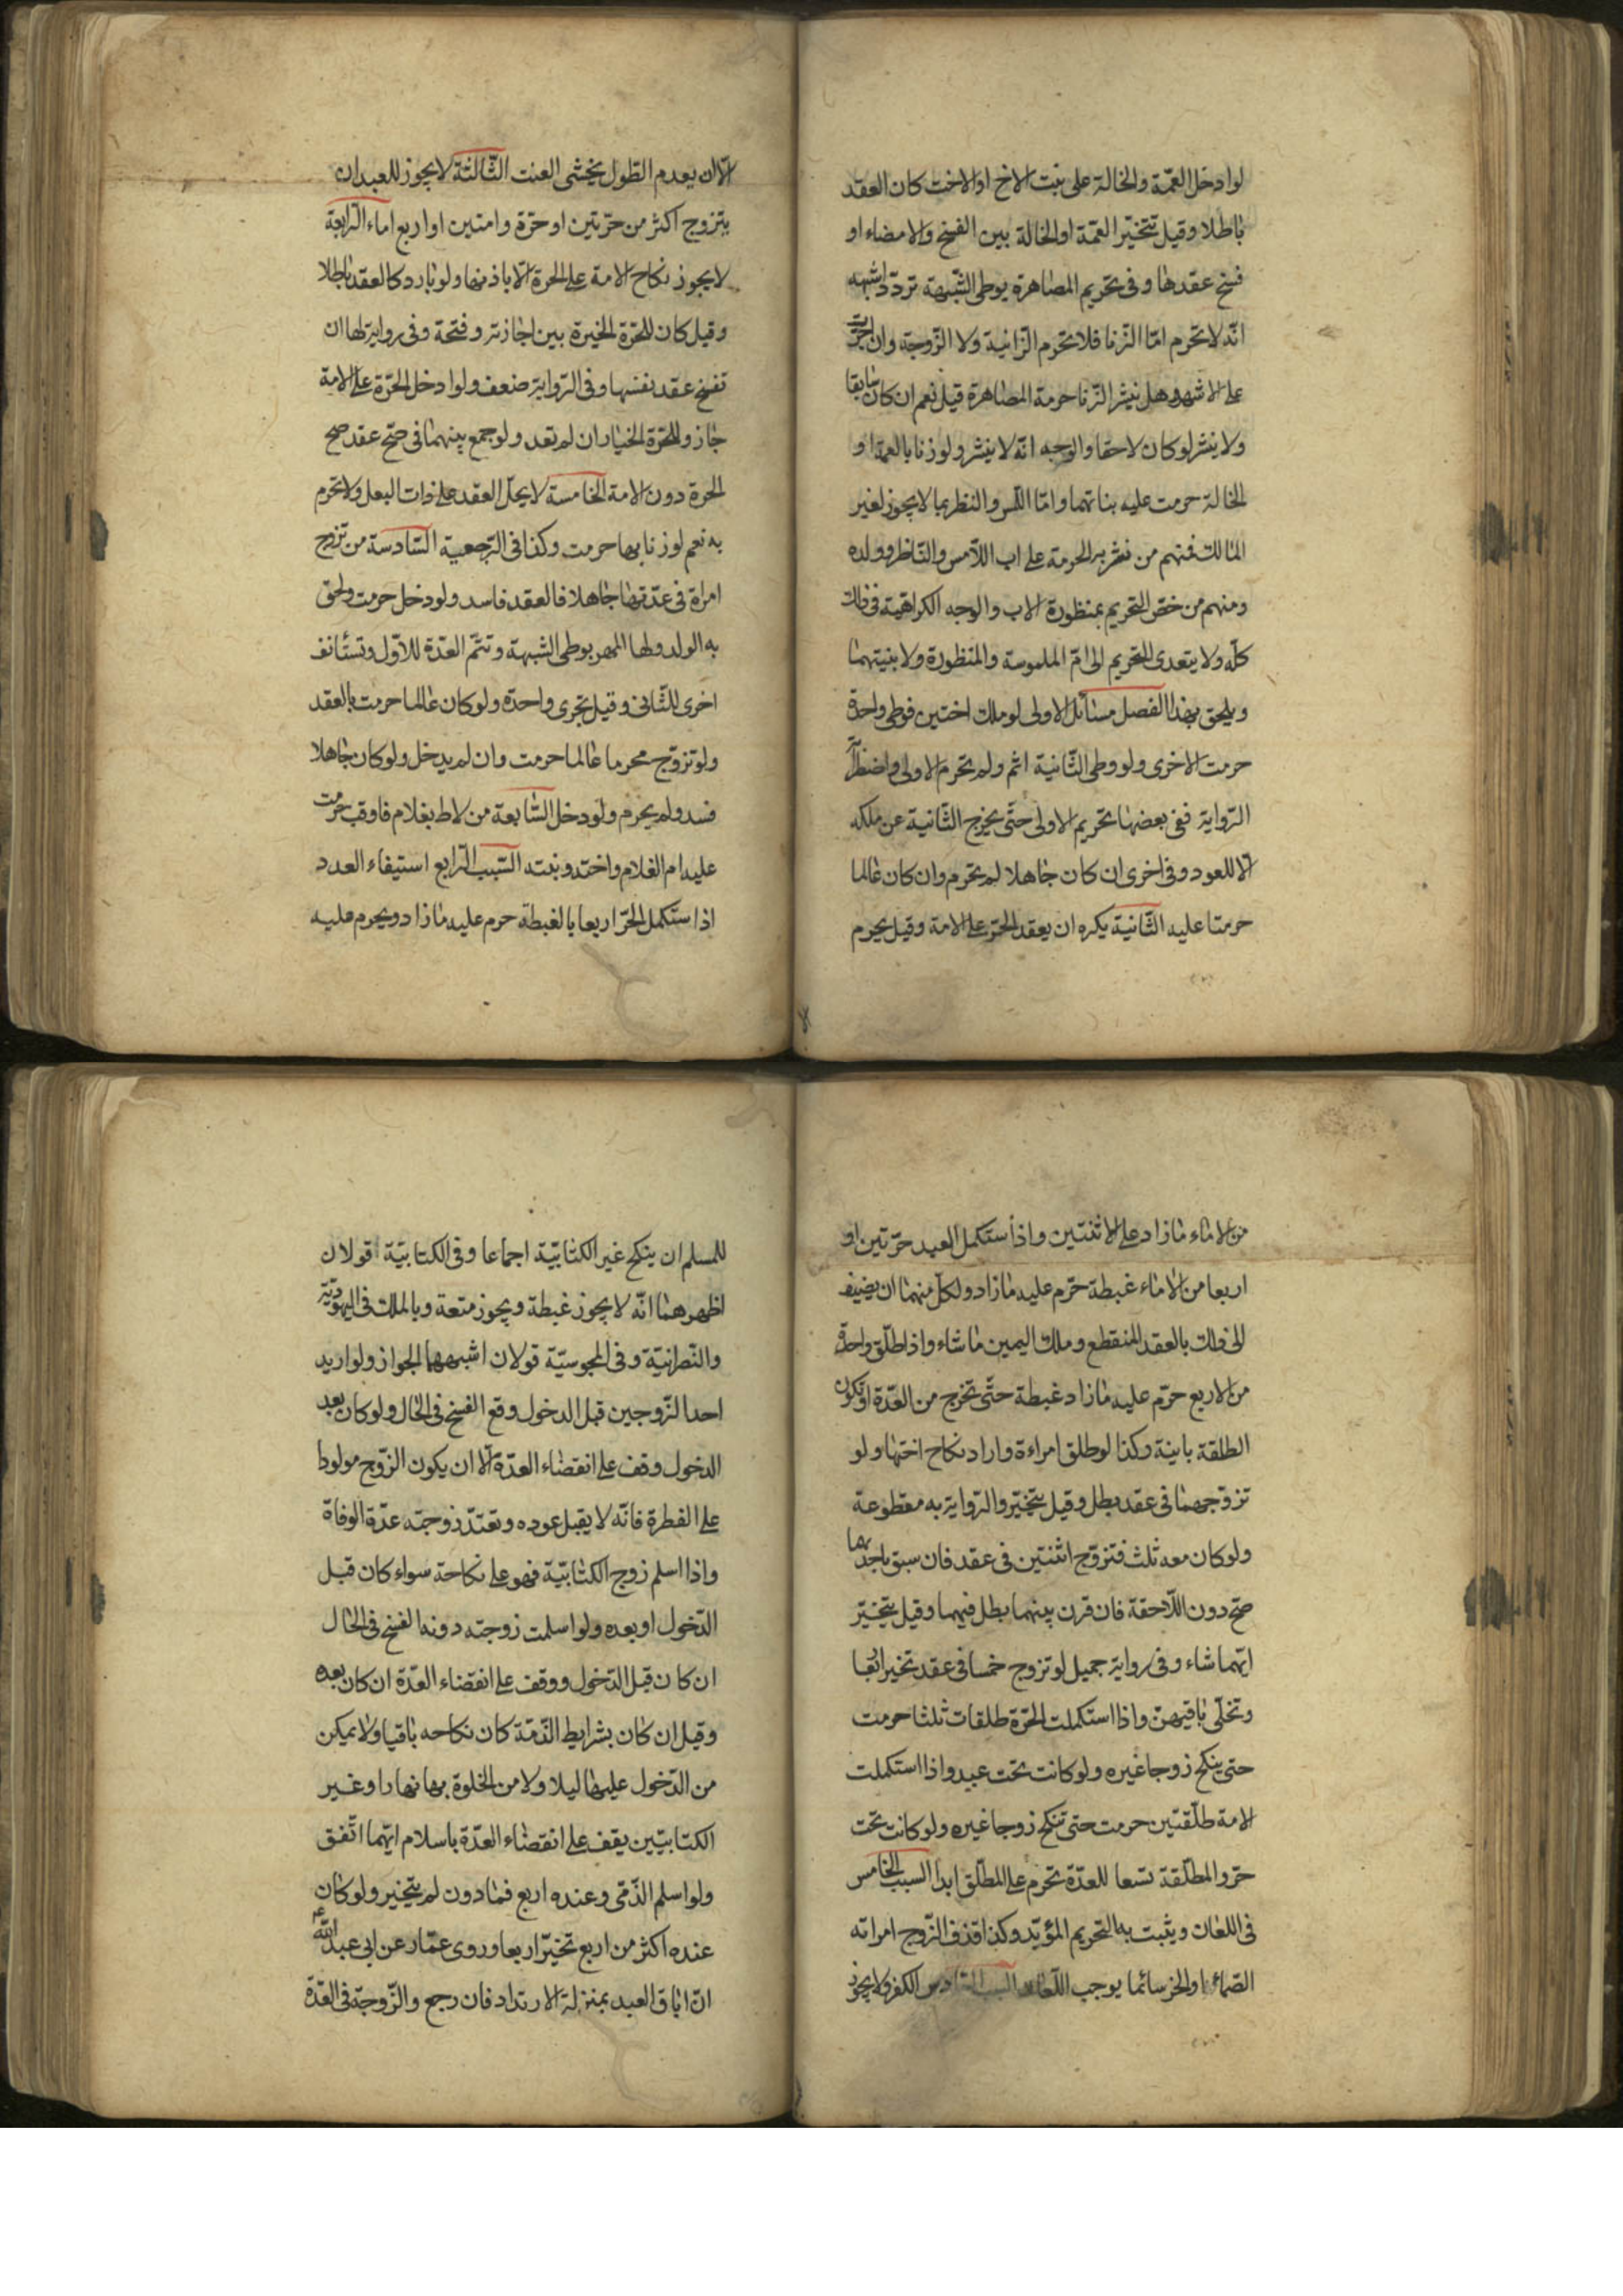 لو ادخل العمّة والخالة على بنت الاخ او الاخت كان العقد
باطلا وقيل تتخيّر العمّة او الخالة بين الفسخ والامضاء او
فسخ عقدها وفى تحريم المصاهرة بوطى الشّبهة تردّد اشبهه
انّه لا تحرم امّا الزّنا فلا تحرم الزّانية ولا الزّوجة وان اصرّت
على الاشهر وهل ينشر الزّنا حرمة المصاهرة قيل نعم ان كان سابقا
ولا ينشر لو كان لاحقا والوجه انّه لا ينشر ولو زنا بالعمة او
الخالة حرمت عليه بناتهما وامّا اللّمس والنظر بما لا يجوز لغير
المالك فمنهم من نشر به الحرمة على اب اللّامس والنّاظر وولده
ومنهم من خصّ التحريم بمنظورة الاب والوجه الكراهية فى ذلك
كلّه ولا يتعدى التحريم الى امّ الملموسة والمنظورة ولا بنيتهما
ويلحق بهذا الفصل مسائل الاولى لو ملك اختين فوطى واحدة
حرمت الاخرى ولو وطى الثّانية اثم ولم تحرم الاولى واضطربت
الرّواية ففى بعضها تحريم الاولى حتّى يخرج الثّانية عن ملكه
لا للعود وفى اخرى ان كان جاهلا لم تحرم وان كان عالما
حرمتا عليه الثّانية يكره ان يعقد الحرّ على الامة وقيل يحرم
الّا ان يعدم الطّول يخشى العنت الثّالثة لا يجوز للعبد ان
يتزوج اكثر من حرّتين او حرّة وامتين او اربع اماء الرّابعة
لا يجوز نكاح الامة على الحرة الّا باذنها ولو بادر كا العقد باطلا
وقيل كان للحرّة الخيرة بين اجازته وفتحة وفى رواية لها ان
تفسخ عقد نفسها وفى الرّواية ضعف ولو ادخل الحرّة على الامة
جاز وللحرّة الخيار ان لم تعد ولو جمع بينهما فى صحّ عقد صح
الحرة دون الامة الخامسة لا يحلّ العقد على ذات البعل ولا تحرم
به نعم لو زنا بها حرمت وكذا فى الرّجعية السّادسة من تزوج
امراة فى عدّتها جاهلا فالعقد فاسد ولو دخل حرمت ولحق
به الولد ولها المهر بوطى الشبهة وتتمّ العدّة للاوّل وتستأنف
اخرى للثّانى وقيل تجزى واحدة ولو كان عالما حرمت بالعقد
ولو تزوّج محرما عالما حرمت وان لم يدخل ولو كان جاهلا
فسد ولم يحرم ولو دخل السّابعة من لاط بغلام فاوقب حرمت
عليه ام الغلام واخته وبنته السّبب الرّابع استيفاء العدد
اذا ستكمل الحرّ اربعا بالغبطة حرم عليه مازاد ويحرم عليه
من الاماء مازاد على الاثنتين واذا ستكمل العبد حرّتين او
اربعا من الاماء غبطة حرّم عليه مازاد ولكلّ منهما ان يضيف
الى ذلك بالعقد المنقطع وملك اليمين ماشاء واذا طلّق واحدة
من الاربع حرّم عليه مازاد غبطة حتّى تخرج من العدّة او تكون
الطلقة باينة وكذا لو طلق امراءة واراد نكاح اختها ولو
تزوّجهما فى عقد بطل وقيل يتخيّر والرّواية به مقطوعة
ولو كان معه ثلث فتزوّج اثنتين فى عقد فان سبق باحدٰهما
صحّ دون اللّاحقة فان قرن بينهما بطل فيهما وقيل يتخيّر
ايّهما شاء وفى رواية جميل لو تزوج خمسا فى عقد تخير اربعا
وتخلّى باقيهنّ واذا استكملت الحرّة طلقات ثلثا حرمت
حتى ينكح زوجا غيره ولو كانت تحت عبد واذا استكملت
الامة طلّقتين حرمت حتى تنكح زوجا غيره ولو كانت تحت
حرّ والمطلّقة تسعا للعدّة تحرم على المطلّق ابدا السبب الخامس
فى اللعان ويثبت به التحريم المؤبّد وكذا قذف الزّوج امراته
الصّماء او الخرسا بما يوجب اللّعان السبب السّادس الكفر ولا يجوز
للمسلم ان ينكح غير الكتابيّة اجماعا وفى الكتابيّة قولان
اظهرهما انّه لا يجوز غبطة ويجوز متعة وبالملك فى اليهوديّة
والنّصرانيّة وفى المجوسيّة قولان اشبههما الجواز ولو اريد
احد الزّوجين قبل الدخول وقع الفسخ فى الحال ولو كان بعد
الدخول وقف على انقضاء العدّة الّا ان يكون الزّوج مولودا
على الفطرة فانّه لا يقبل عوده وتعتدّ زوجته عدّة الوفاة
واذا اسلم زوج الكتابيّة فهو على نكاحة سواء كان قبل
الدّخول او بعده ولو اسلمت زوجته دونه انفسخ فى الحال
ان كان قبل الدّخول ووقف على انقضاء العدّة ان كان بعده
وقيل ان كان بشرايط الذّمّة كان نكاحه باقيا ولا يمكن
من الدّخول عليها ليلا ولا من الخلوة بها نهارا وغير
الكتابيّين يقف على انقضاء العدّة باسلام ايّهما اتّفق
ولو اسلم الذّمّى وعنده اربع فمادون لم يتخيّر ولو كان
عنده اكثر من اربع تخيّر اربعا وروى عمّار عن ابى عبد اللّه ع
انّ اباق العبد بمنزلة الارتداد فان رجع والزّوجة فى العدّة